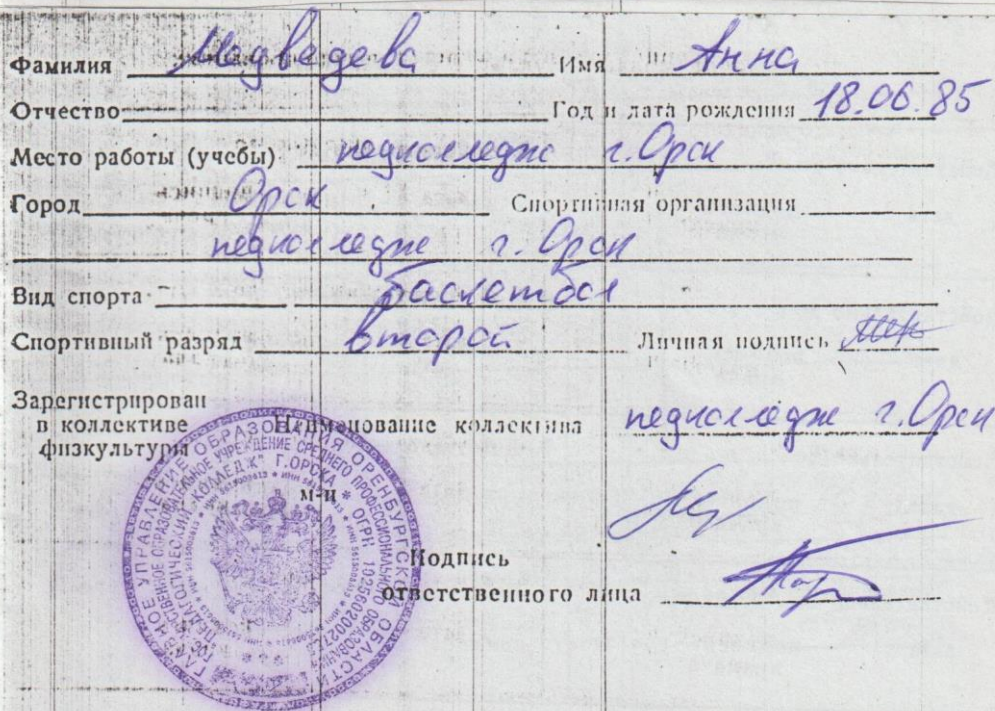 Фамилия Медведева Имя Анна
Отчество Год и дата рождения 18.06.85
Место работы (учебы) педколледж г. Орск
Город Орск Спортивная организация
педколледж г. Орск
Вид спорта баскетбол
Спортивный разряд второй Личная подпись
Зарегистрирован
в коллективе Наименование коллектива педколледж г. Орск
физкультуры
ГЛАВНОЕ УПРАВЛЕНИЕ ОБРАЗОВАНИЯ ОРЕНБУРГСКОЙ ОБЛАСТИ
ОБРАЗОВАТЕЛЬНОЕ УЧРЕЖДЕНИЕ СРЕДНЕГО ПРОФЕССИОНАЛЬНОГО ОБРАЗОВАНИЯ
ПЕДАГОГИЧЕСКИЙ КОЛЛЕДЖ" Г.ОРСКА * ОГРН
Подпись
ответственного лица